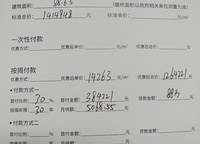 建筑面积: 88.63 (最终面积以政府相关单位测量为准)
标准总价: 1414948 元
一次性付款
优惠方式: 优惠后单价: 元/m² 优惠后总价: 元
按揭付款
优惠方式: 优惠后单价: 14263 元/m² 优惠后总价: 1264221 元
• 付款方式一
首付比例: 30 % 首付金额: 384221 元 贷款金额: 88万 元
贷款年限: 30 年 月供款: 5068.55 元
• 付款方式二
首付比例: % 首付金额: 元 贷款金额: 元